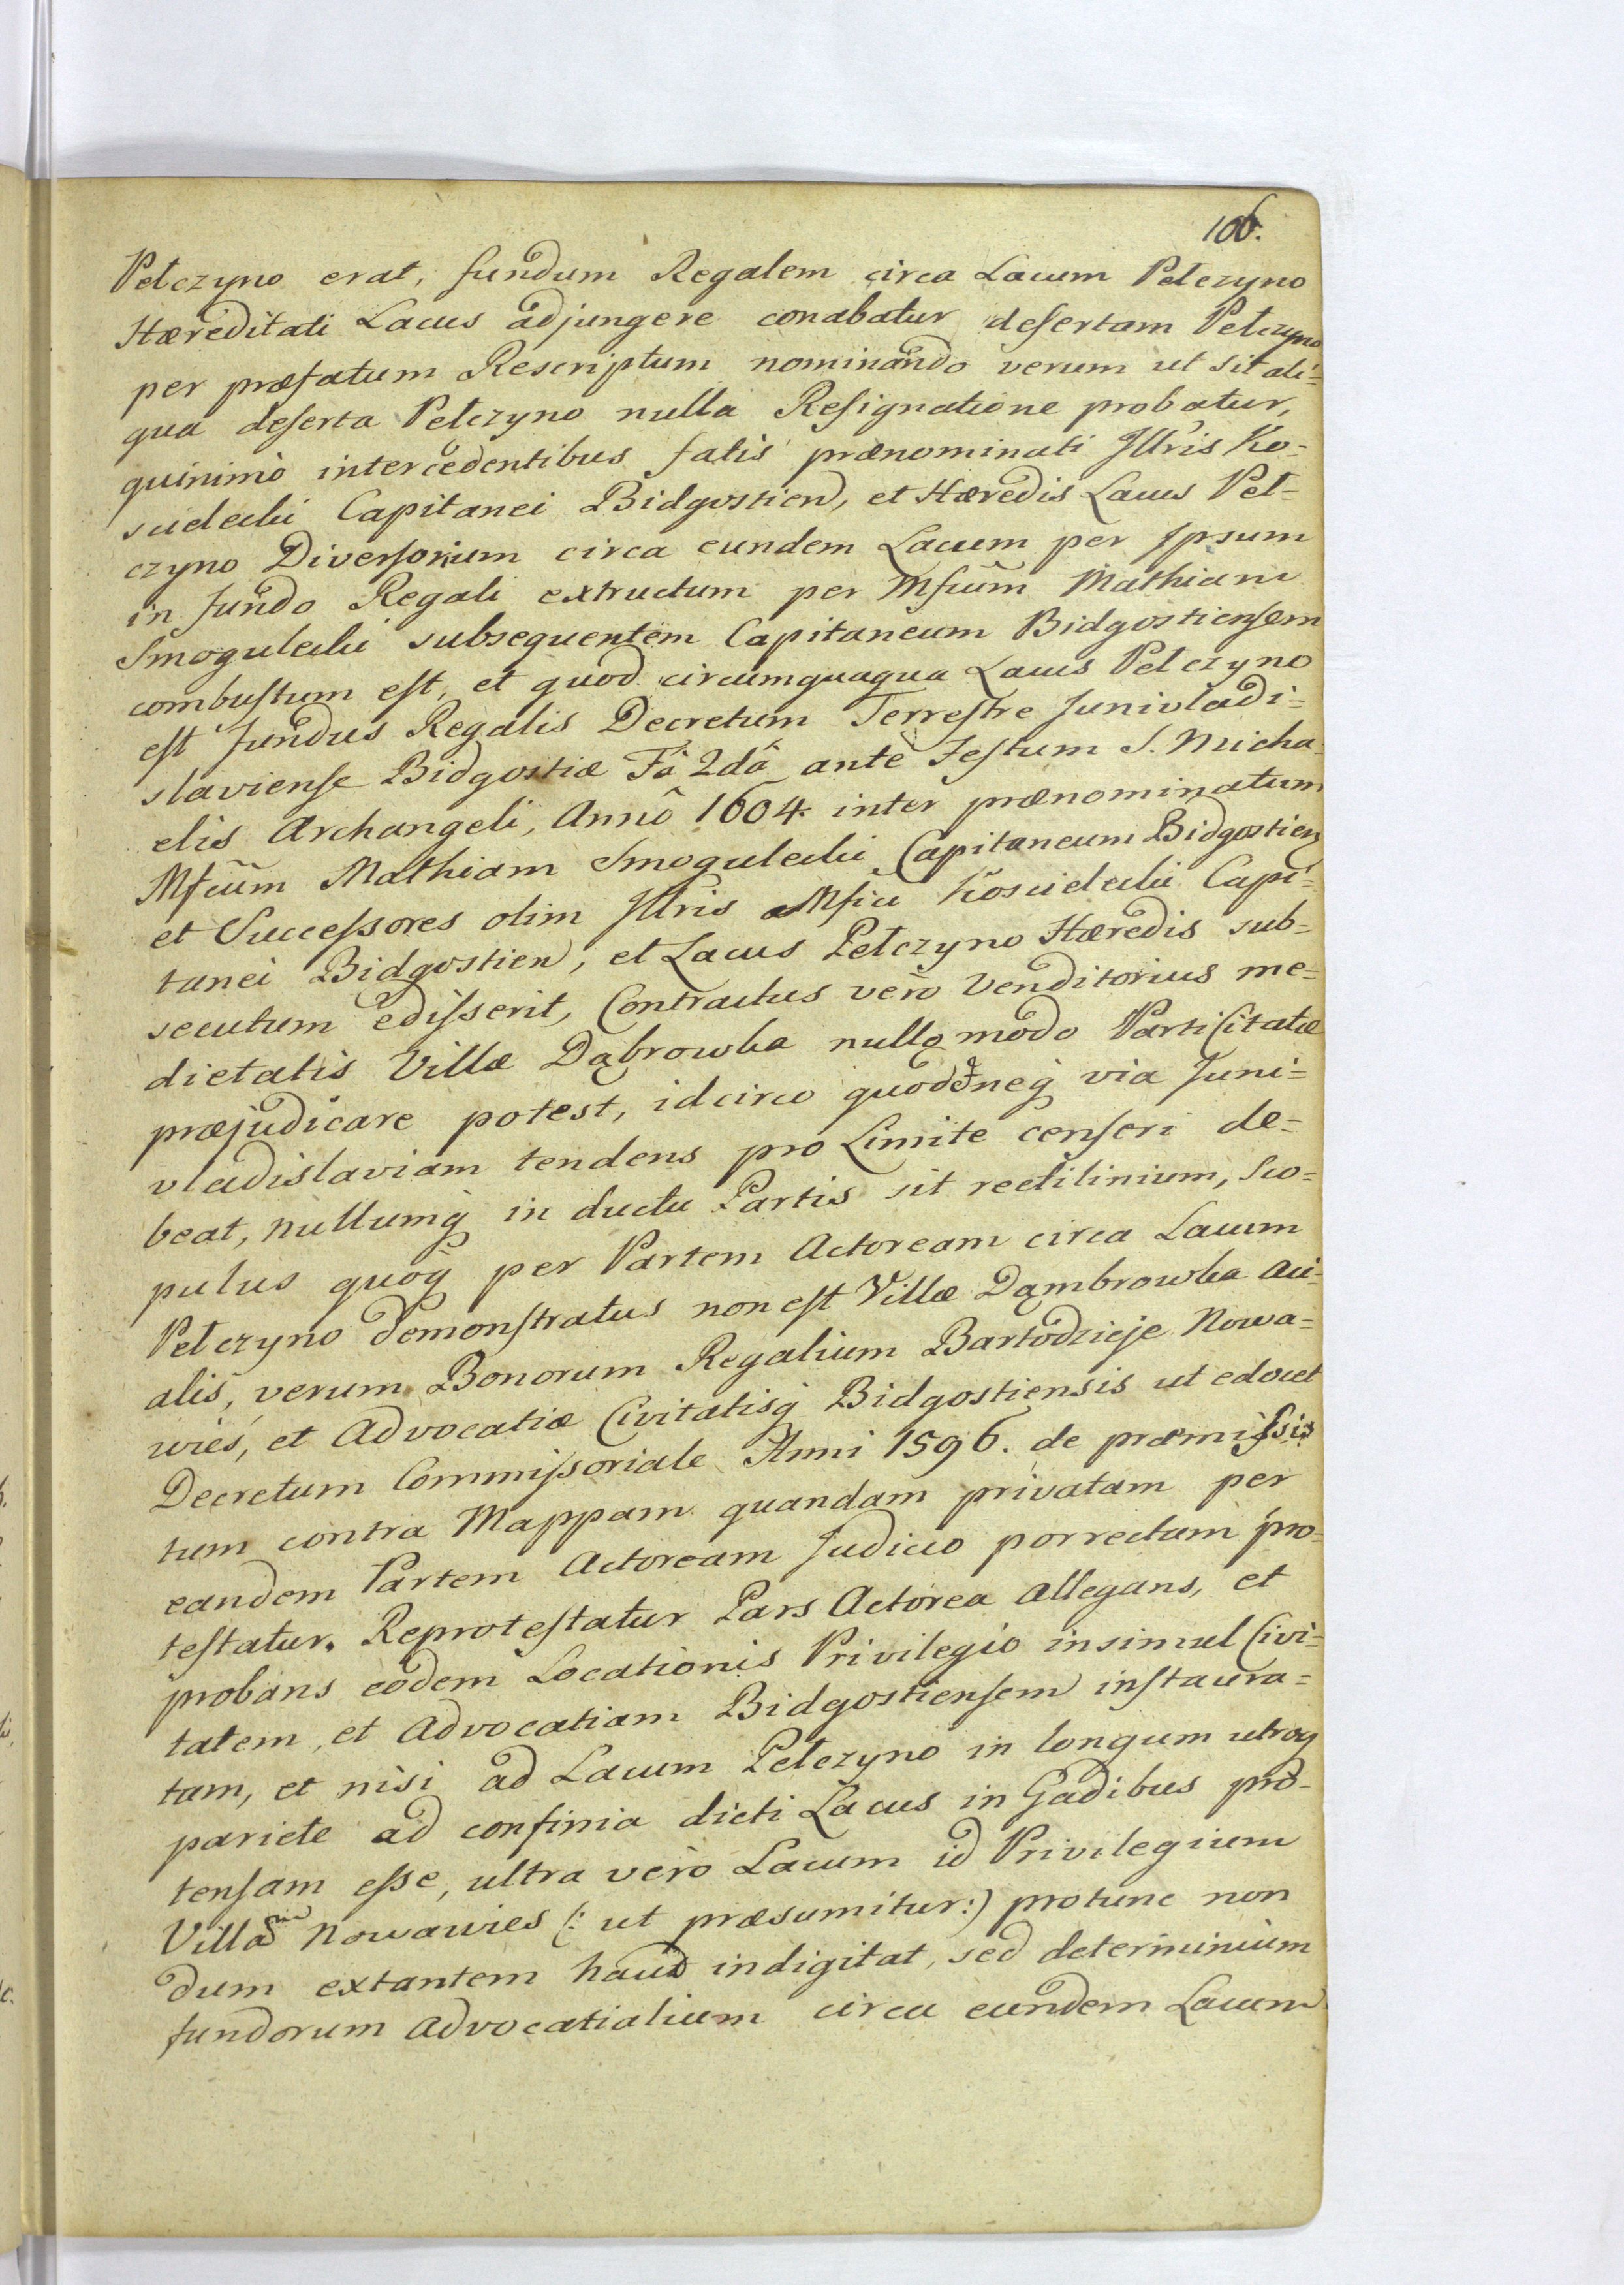 106.
Pełczyno erat, fundum Regalem circa Lacum Pełczyno
Hæreditati Lacus adjungere conabatur desertam Pełczyno
per præfatum Rescriptum nominando verum ut sit ali=
qua deserta Pełczyno nulla Resignatione probatur,
quinimò intercedentibus fatis prænominati Jllris Ko=
scielecki Capitanei Bidgostien, et Hæredis Lacus Peł=
czyno Diversorium circa eundem Lacum per Ipsum
in fundo Regali extructum per Mficum Mathiam
Smogulecki subsequentem Capitaneum Bidgostiensem
combustum est, et quod circumquaqua Lacus Pełczyno
est fundus Regalis Decretum Terrestre Junivladi=
slaviense Bidgostiæ Fâ 2dâ ante Festum S. Micha=
elis Archangeli, Annô 1604. inter prænominatum
Mficum Mathiam Smogulecki Capitaneum Bidgostien
et Successores olim Jllris Mfici Koscielecki Capi=
tanei Bidgostien, et Lacus Pełczyno Hæredis sub=
secutum edisserit, Contractus verò Venditorius me=
dietatis Villæ Dąbrowka nullo modo Parti Citatæ
præjudicare potest, idcirco quod neq via Juni=
vladislaviam tendens pro Limite censeri de=
beat, nullumq in ductu Partis sit rectilinium, Sco=
pulus quoq per Partem Actoream circa Lacum
Pełczyno demonstratus non est Villæ Dąmbrowka aci=
alis, verum Bonorum Regalium Bartodzieje Nowa=
wies, et Advocatiæ Civitatisq Bidgostiensis ut edocet
Decretum Commissoriale Anni 1596. de præmissis
tum contra Mappam quandam privatam per
eandem Partem Actoream Judicio porrectam pro=
testatur. Reprotestatur Pars Actorea allegans, et
probans eodem Locationis Privilegio insimul Civi=
tatem, et Advocatiam Bidgostiensem instaura=
tam, et nisi ad Lacum Pełczyno in longum utroq
pariete ad confinia dicti Lacus in Gadibus pro=
tensam esse, ultra verò Lacum id Privilegium
Villam Nowawies (: ut præsumitur:) protunc non
dum extantem haud indigitat, sed determinium
fundorum Advocatialium circa eundem Lacum